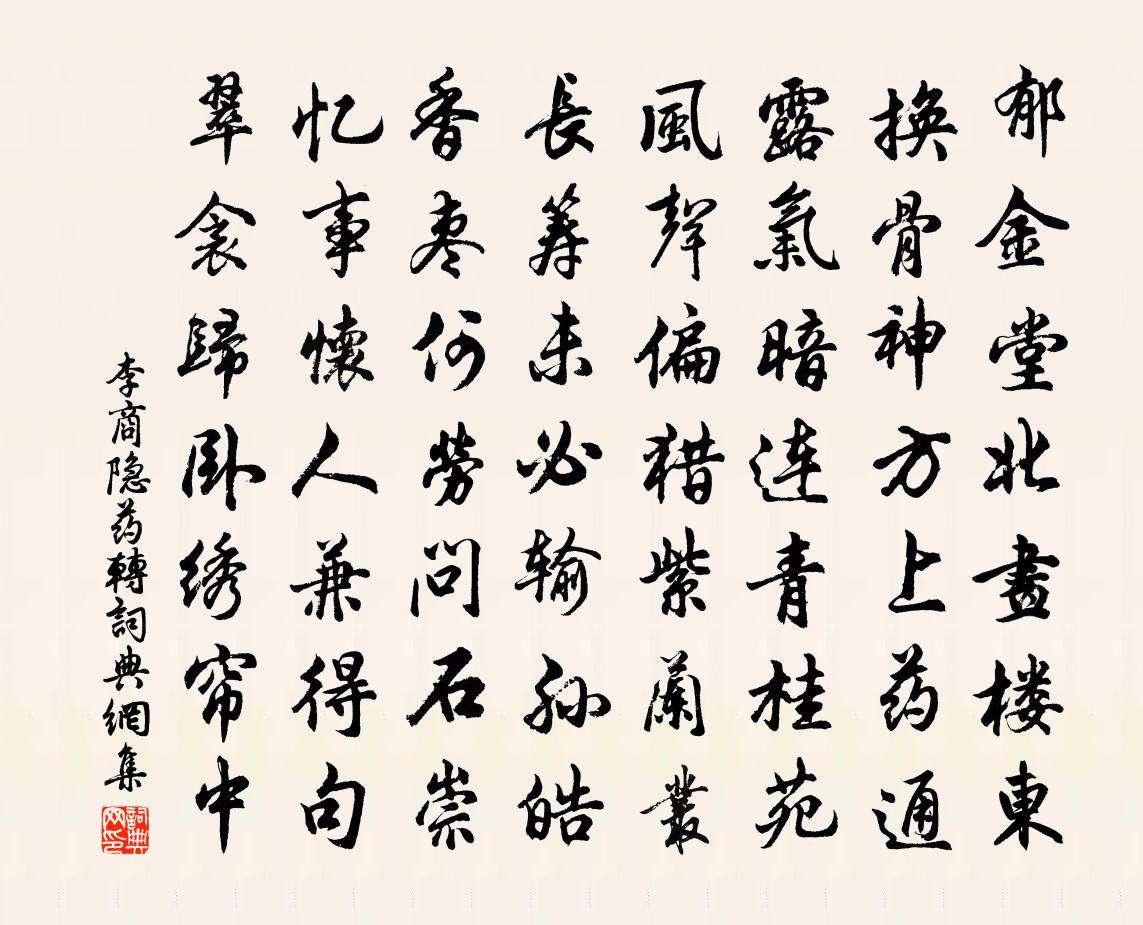 郁金堂北畫楼東
換骨神方上药通
露氣暗連青桂苑
風聲偏猎紫蘭叢
長筹未必输孙皓
香枣何勞問石崇
忆事懷人兼得句
翠衾歸卧绣帘中
李商隐药轉詞典網集
詞典网印